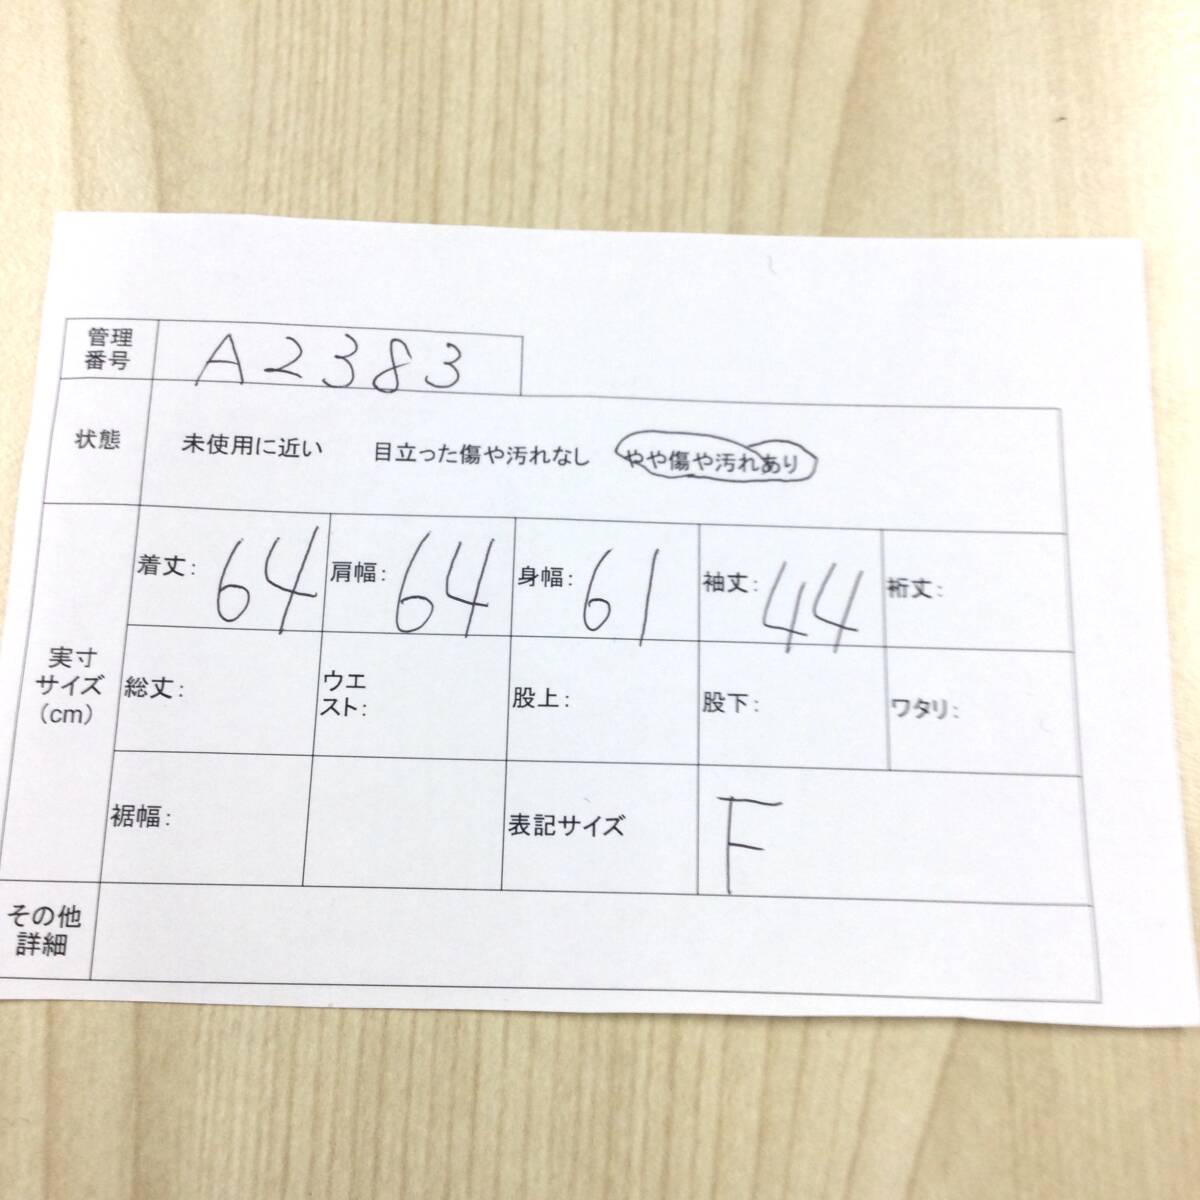 管理
番号
A2383
状態
未使用に近い 目立った傷や汚れなし やや傷や汚れあり
実寸
サイズ
(cm)
着丈: 64 肩幅: 64 身幅: 61 袖丈: 44 裄丈:
総丈: ウエ
スト: 股上: 股下: ワタリ:
裾幅: 表記サイズ F
その他
詳細